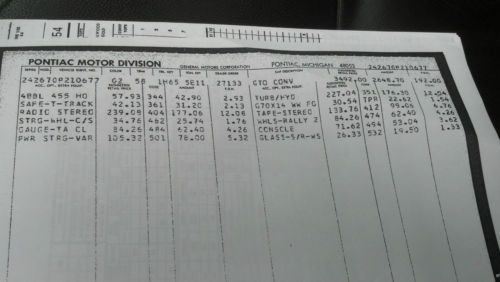 54
PONTIAC MOTOR DIVISION GENERAL MOTORS CORPORATION PONTIAC, MICHIGAN 48053 242670P210677
242670P210677 G2 58 1H65 5E11 27133 GTO CONV 3492.00 2648.70 192.00
ACC., OPT., EXTRA EQUIP. RETAIL PRICE CODE AMOUNT F.R.H. ACC., OPT., EXTRA EQUIP. AMOUNT
4BBL 455 HO 57.93 344 42.90 2.93 TURB/HYD 227.04 351 176.30 12.54
SAFE-T-TRACK 42.13 361 31.20 2.13 G70X14 WW FG 30.54 TPR 22.62 1.54
RADIO STEREO 239.08 404 177.06 12.08 TAPE-STEREO 133.76 412 99.06 6.76
STRG-WHL-C/S 34.76 462 25.74 1.76 WHLS-RALLY 2 84.26 474 62.40 4.26
GAUGE-TA CL 84.26 484 62.40 4.26 CONSOLE 71.62 494 53.04 3.62
PWR STRG-VAR 105.32 501 78.00 5.32 GLASS-S/R-WS 26.33 532 19.50 1.33